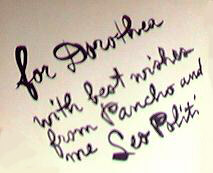 for Dorothea
with best wishes
from Pancho and
me Leo Politi